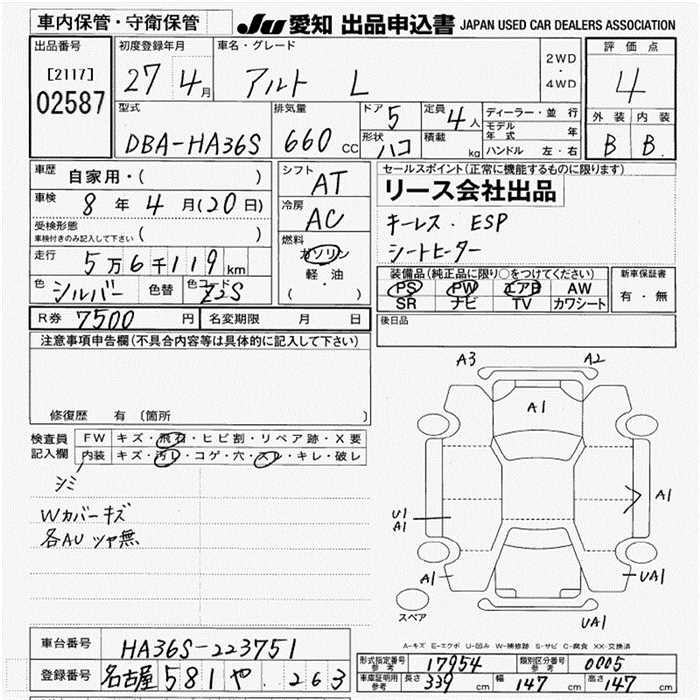 車内保管・守衛保管
JU 愛知 出品申込書 JAPAN USED CAR DEALERS ASSOCIATION
出品番号
[2117]
02587
初度登録年月
27 4月
車名・グレード
アルト L
2WD
・
4WD
評価点
4
型式
DBA-HA36S
排気量
660 CC
ドア 5
形状 ハコ
定員 4人
積載 kg
ディーラー・並行
モデル年式 年
ハンドル 左・右
外装 内装
B B
車歴 自家用・( )
車検 8年4月(20日)
受検形態
車検付きのみ記入して下さい ( )
走行 5万6千119km
色 シルバー 色替 色コード Z2S
シフト AT
冷房 AC
燃料
ガソリン
軽・油
( ・ )
セールスポイント(正常に機能するものに限ります)
リース会社出品
キーレス . ESP
シートヒーター
装備品(純正品に限り○をつけてください)
PS PW エアB AW
SR ナビ TV カワシート
新車保証書
有・無
R券 7500 円 名変期限 月 日
後日品
注意事項申告欄(不具合内容等は具体的に記入して下さい)
修復歴 有 〔箇所 〕
検査員記入欄
FW キズ・飛石・ヒビ割・リペア跡・X要
内装 キズ・汚レ・コゲ・穴・スレ・キレ・破レ
シミ
Wカバーキズ
各AU ツヤ無
A3 A2
A1
U1
A1
A1
A1 UA1
スペア
UA1
A-キズ E-エクボ U-凹み W-補修跡 S-サビ C-腐食 XX-交換済
車台番号 HA36S-223751
登録番号 名古屋 581 や .263
形式指定番号参考 17954 類別区分番号参考 0005
車庫証明用参考 長さ 339 cm 幅 147 cm 高さ 147 cm